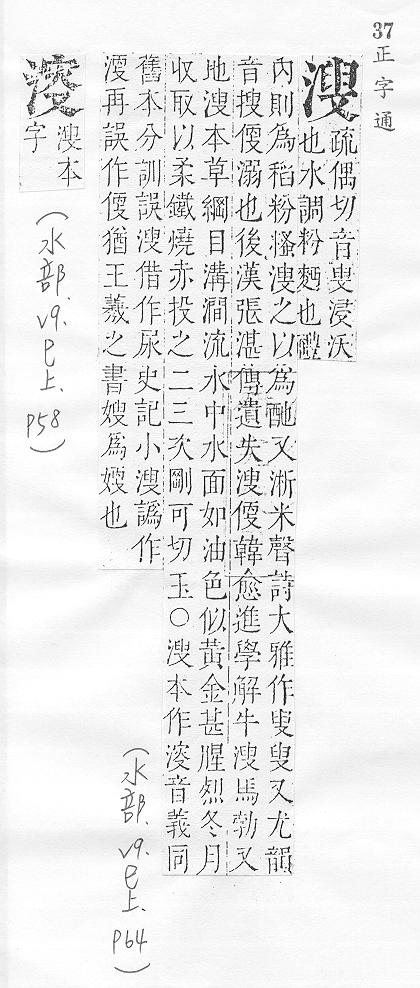 37 正字通
溲
疏偶切音叟浸沃
也水調粉麪也禮
內則為稻粉糔溲之以為酏又淅米聲詩大雅作叟叟又尤韻
音搜便溺也後漢張湛傳遺失溲便韓愈進學解牛溲馬勃又
地溲本草綱目溝澗流水中水面如油色似黃金甚腥烈冬月
收取以柔鐵燒赤投之二三次剛可切玉○溲本作滚音義同
舊本分訓誤溲借作尿史記小溲譌作
溲再誤作便猶王羲之書嫂爲㛮也
(水部.v9.巳上.p64)
溲本
字
(水部.v9.巳上.p58)